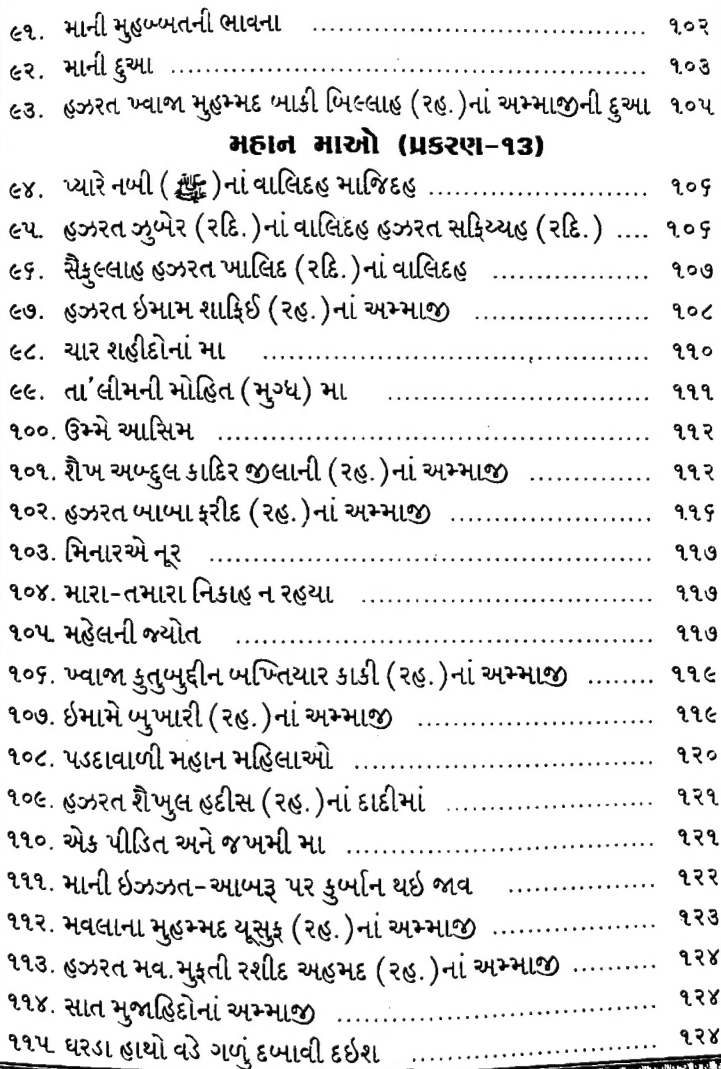 ૯૧. માની મુહબ્બતની ભાવના ................................... ૧૦૨
૯૨. માની દુઆ .................................................. ૧૦૩
૯૩. હઝરત ખ્વાજા મુહમ્મદ બાકી બિલ્લાહ (રહ.)નાં અમ્માજીની દુઆ ૧૦૫
મહાન માઓ (પ્રકરણ-૧૩)
૯૪. પ્યારે નબી (ﷺ)નાં વાલિદહ માજિદહ ....................... ૧૦૬
૯૫. હઝરત ઝુબેર (રદિ.)નાં વાલિદહ હઝરત સફિય્યહ (રદિ.) .... ૧૦૬
૯૬. સૈફુલ્લાહ હઝરત ખાલિદ (રદિ.)નાં વાલિદહ ................... ૧૦૭
૯૭. હઝરત ઇમામ શાફિઈ (રહ.)નાં અમ્માજી ..................... ૧૦૮
૯૮. ચાર શહીદોનાં મા ......................................... ૧૧૦
૯૯. તા'લીમની મોહિત (મુગ્ધ) મા ............................ ૧૧૧
૧૦૦. ઉમ્મે આસિમ ............................................. ૧૧૨
૧૦૧. શૈખ અબ્દુલ કાદિર જીલાની (રહ.)નાં અમ્માજી ............. ૧૧૨
૧૦૨. હઝરત બાબા ફરીદ (રહ.)નાં અમ્માજી ...................... ૧૧૬
૧૦૩. મિનારએ નૂર .............................................. ૧૧૭
૧૦૪. મારા-તમારા નિકાહ ન રહયા ............................... ૧૧૭
૧૦૫. મહેલની જ્યોત ............................................ ૧૧૭
૧૦૬. ખ્વાજા કુતુબુદ્દીન બખ્તિયાર કાકી (રહ.)નાં અમ્માજી ........ ૧૧૯
૧૦૭. ઇમામે બુખારી (રહ.)નાં અમ્માજી ......................... ૧૧૯
૧૦૮. પડદાવાળી મહાન મહિલાઓ ................................ ૧૨૦
૧૦૯. હઝરત શૈખુલ હદીસ (રહ.)નાં દાદીમાં ...................... ૧૨૧
૧૧૦. એક પીડિત અને જખમી મા ................................. ૧૨૧
૧૧૧. માની ઇઝઝત-આબરૂ પર કુર્બાન થઇ જાવ ................ ૧૨૨
૧૧૨. મવલાના મુહમ્મદ યૂસુફ (રહ.)નાં અમ્માજી ................... ૧૨૩
૧૧૩. હઝરત મવ.મુફતી રશીદ અહમદ (રહ.)નાં અમ્માજી ......... ૧૨૪
૧૧૪. સાત મુજાહિદોનાં અમ્માજી .................................. ૧૨૪
૧૧૫. ઘરડા હાથો વડે ગળું દબાવી દઇશ .......................... ૧૨૪